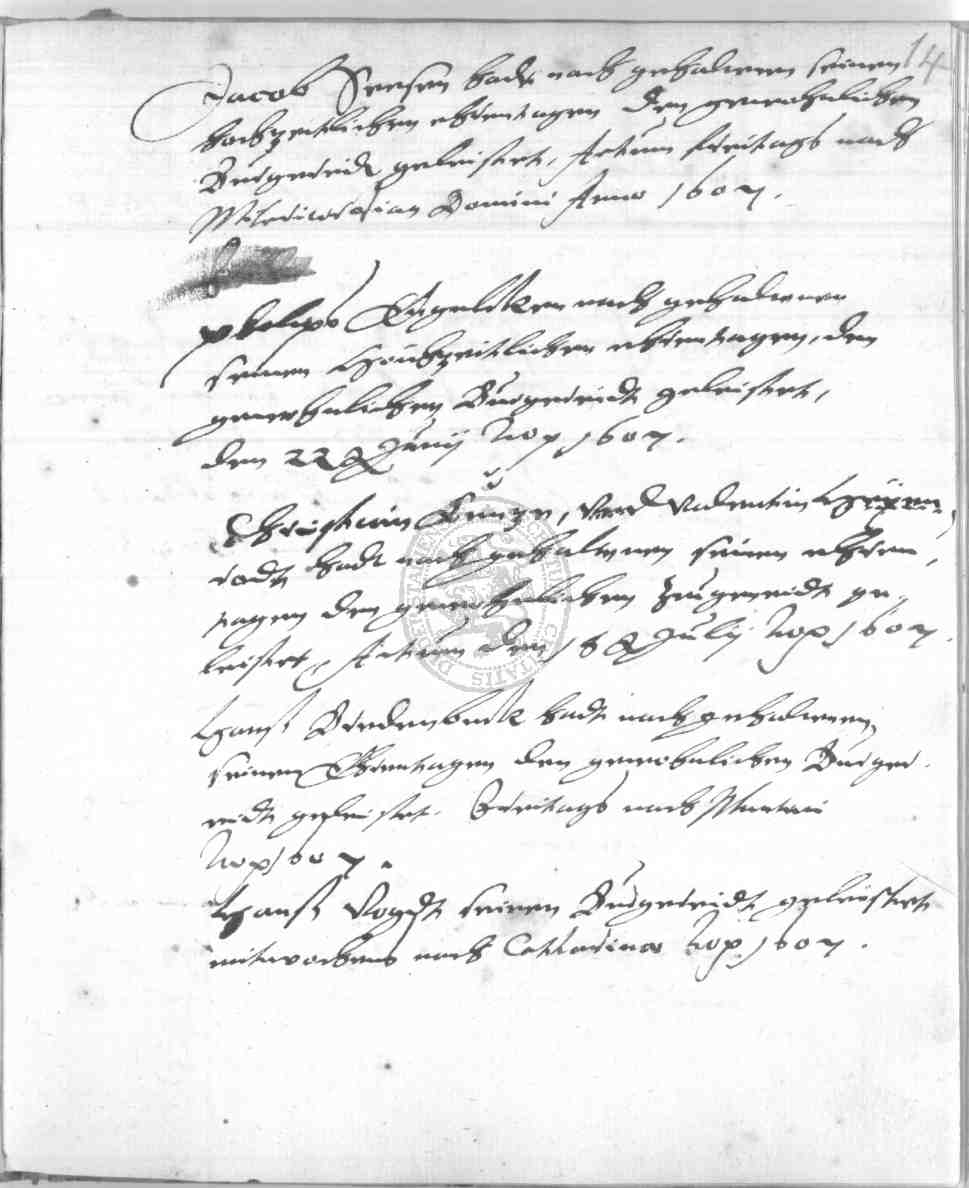 14
Jacob Seesen hadt nach gehaltenen seinen
hochzeitlichen ehrentagen den gewohnlichen
Burgereidt geleistet, Actum freitags nach
Misericordias Domini Anno 1607.
Philips nach gehaltenen
seinen hochzeitlichen ehrentagen, den
gewohnlichen Burgereidt geleistet,
den 22 Junij Anno 1607.
Christian Kuntze, vndt Valentin
rodt hadt nach gehaltenen seinen ehren
tagen den gewohnlichen Burgereidt ge
leistet, Actum den 18 Julij Anno 1607
Hanß Bredenbeck hadt nach gehaltenen
seinen Ehrentagen den gewohnlichen Burger
eidt geleistet. Freitags nach Martini
Anno 1607.
Hanß Vogdt seinen Burgereidt geleistet
mitwochens nach Catharinae Anno 1607.